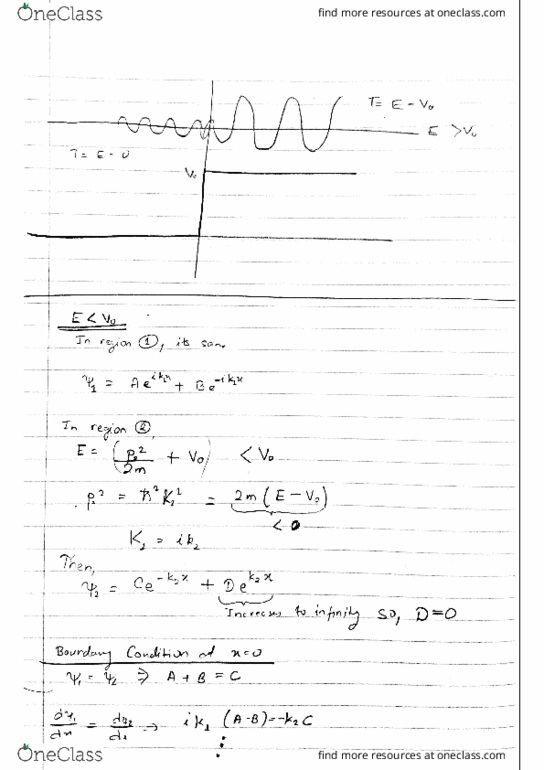 OneClass
find more resources at oneclass.com
T= E - V₀
E > V₀
T= E - 0
V₀
E < V₀
In region ①, its same
Ψ₁ = Ae^{ik₁x} + Be^{-ik₁x}
In region ②,
E = (p₂²/2m + V₀) < V₀
p₂² = ħ²K₂² = 2m(E - V₀)
< 0
K₂ = ik₂
Then,
Ψ₂ = Ce^{-k₂x} + De^{k₂x}
Increases to infinity so, D=0
Boundary Condition at x=0
Ψ₁ = Ψ₂ ⇒ A + B = C
dΨ₁/dx = dΨ₂/dx → ik₁ (A-B) = -k₂C
⋮
OneClass
find more resources at oneclass.com